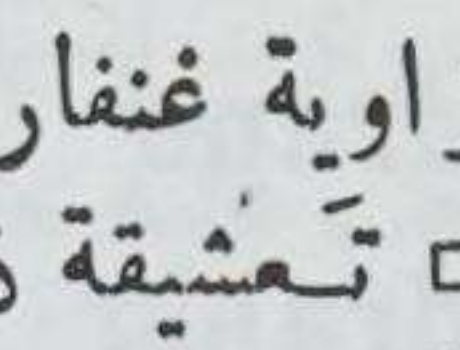 اوية غنفار
□ تَعشيقة